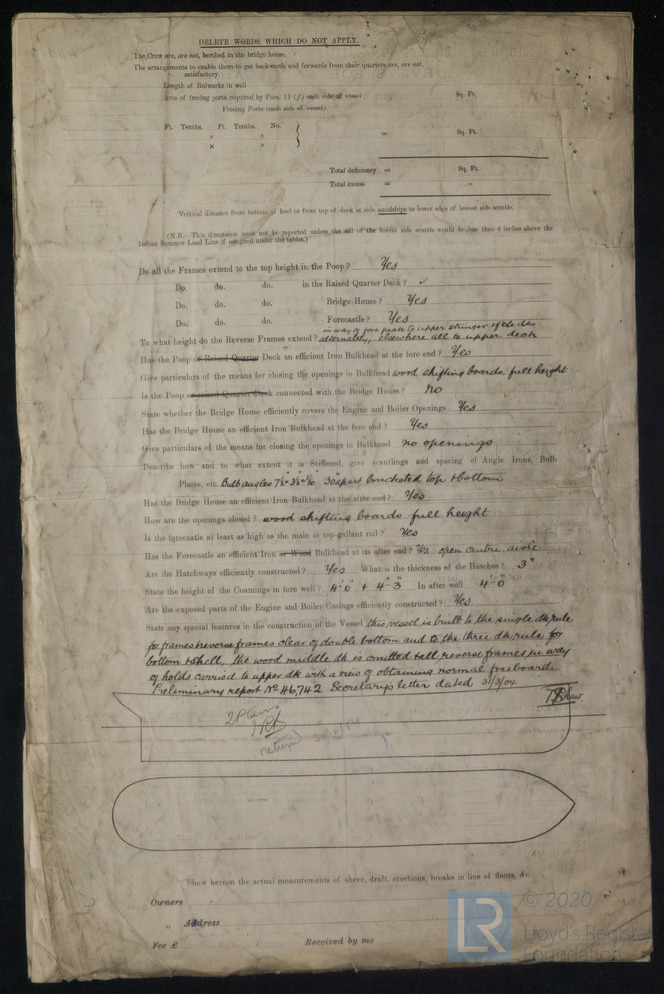 DELETE WORDS WHICH DO NOT APPLY.
The Crew are, are not, berthed in the bridge house.
The arrangements to enable them to get backwards and forwards from their quarters are, are not,
satisfactory.
Length of Bulwarks in well
Area of freeing ports required by Para. 11 (f) each side of vessel Sq. Ft.
Freeing Ports (each side of vessel)
Ft. Tenths. Ft. Tenths. No.
× × = Sq. Ft.
× ×
Total deficiency = Sq. Ft.
Total excess = "
Vertical distance from bottom of keel or from top of deck at side amidships to lower edge of lowest side scuttle.
(N.B.—This dimension need not be reported unless the sill of the lowest side scuttle would be less than 6 inches above the
Indian Summer Load Line if assigned under the tables.)
Do all the Frames extend to the top height in the Poop? Yes
Do. do. do. in the Raised Quarter Deck? ✓
Do. do. do. Bridge House? Yes
Do. do. do. Forecastle? Yes
in way of fore peak to upper stringer & the dks
To what height do the Reverse Frames extend? alternately, elsewhere all to upper deck
Has the Poop or Raised Quarter Deck an efficient Iron Bulkhead at the fore end? Yes
Give particulars of the means for closing the openings in Bulkhead wood shifting boards, full height
Is the Poop or raised Quarter Deck connected with the Bridge House? No
State whether the Bridge House efficiently covers the Engine and Boiler Openings Yes
Has the Bridge House an efficient Iron Bulkhead at the fore end? Yes
Give particulars of the means for closing the openings in Bulkhead no openings
Describe how and to what extent it is Stiffened, give scantlings and spacing of Angle Irons, Bulb
Plates, etc. Bulb angles 30" apart bracketed top & bottom
Has the Bridge House an efficient Iron Bulkhead at the after end? Yes
How are the openings closed? wood shifting boards full height
Is the forecastle at least as high as the main or top-gallant rail? Yes
Has the Forecastle an efficient Iron or Wood Bulkhead at its after end? open centre
Are the Hatchways efficiently constructed? Yes What is the thickness of the Hatches? 3"
State the height of the Coamings in fore well? 4'-0" + 4'-3" In after well 4'-0"
Are the exposed parts of the Engine and Boiler Casings efficiently constructed? Yes
State any special features in the construction of the Vessel this vessel is built to the single dk rule
for frames & reverse frames clear of double bottom and to the three dk rule for
bottom & shell, the wood middle dk is omitted & all reverse frames in way
of holds carried to upper dk with a view of obtaining normal freeboard.
Preliminary report No 46742 Secretary's letter dated 3/3/04
return
Show hereon the actual measurements of sheer, draft, erections, breaks in line of floors, &c.
Owners
" Address
Fee £ Received by me
LR
© 2020
Lloyd's Register
Foundation